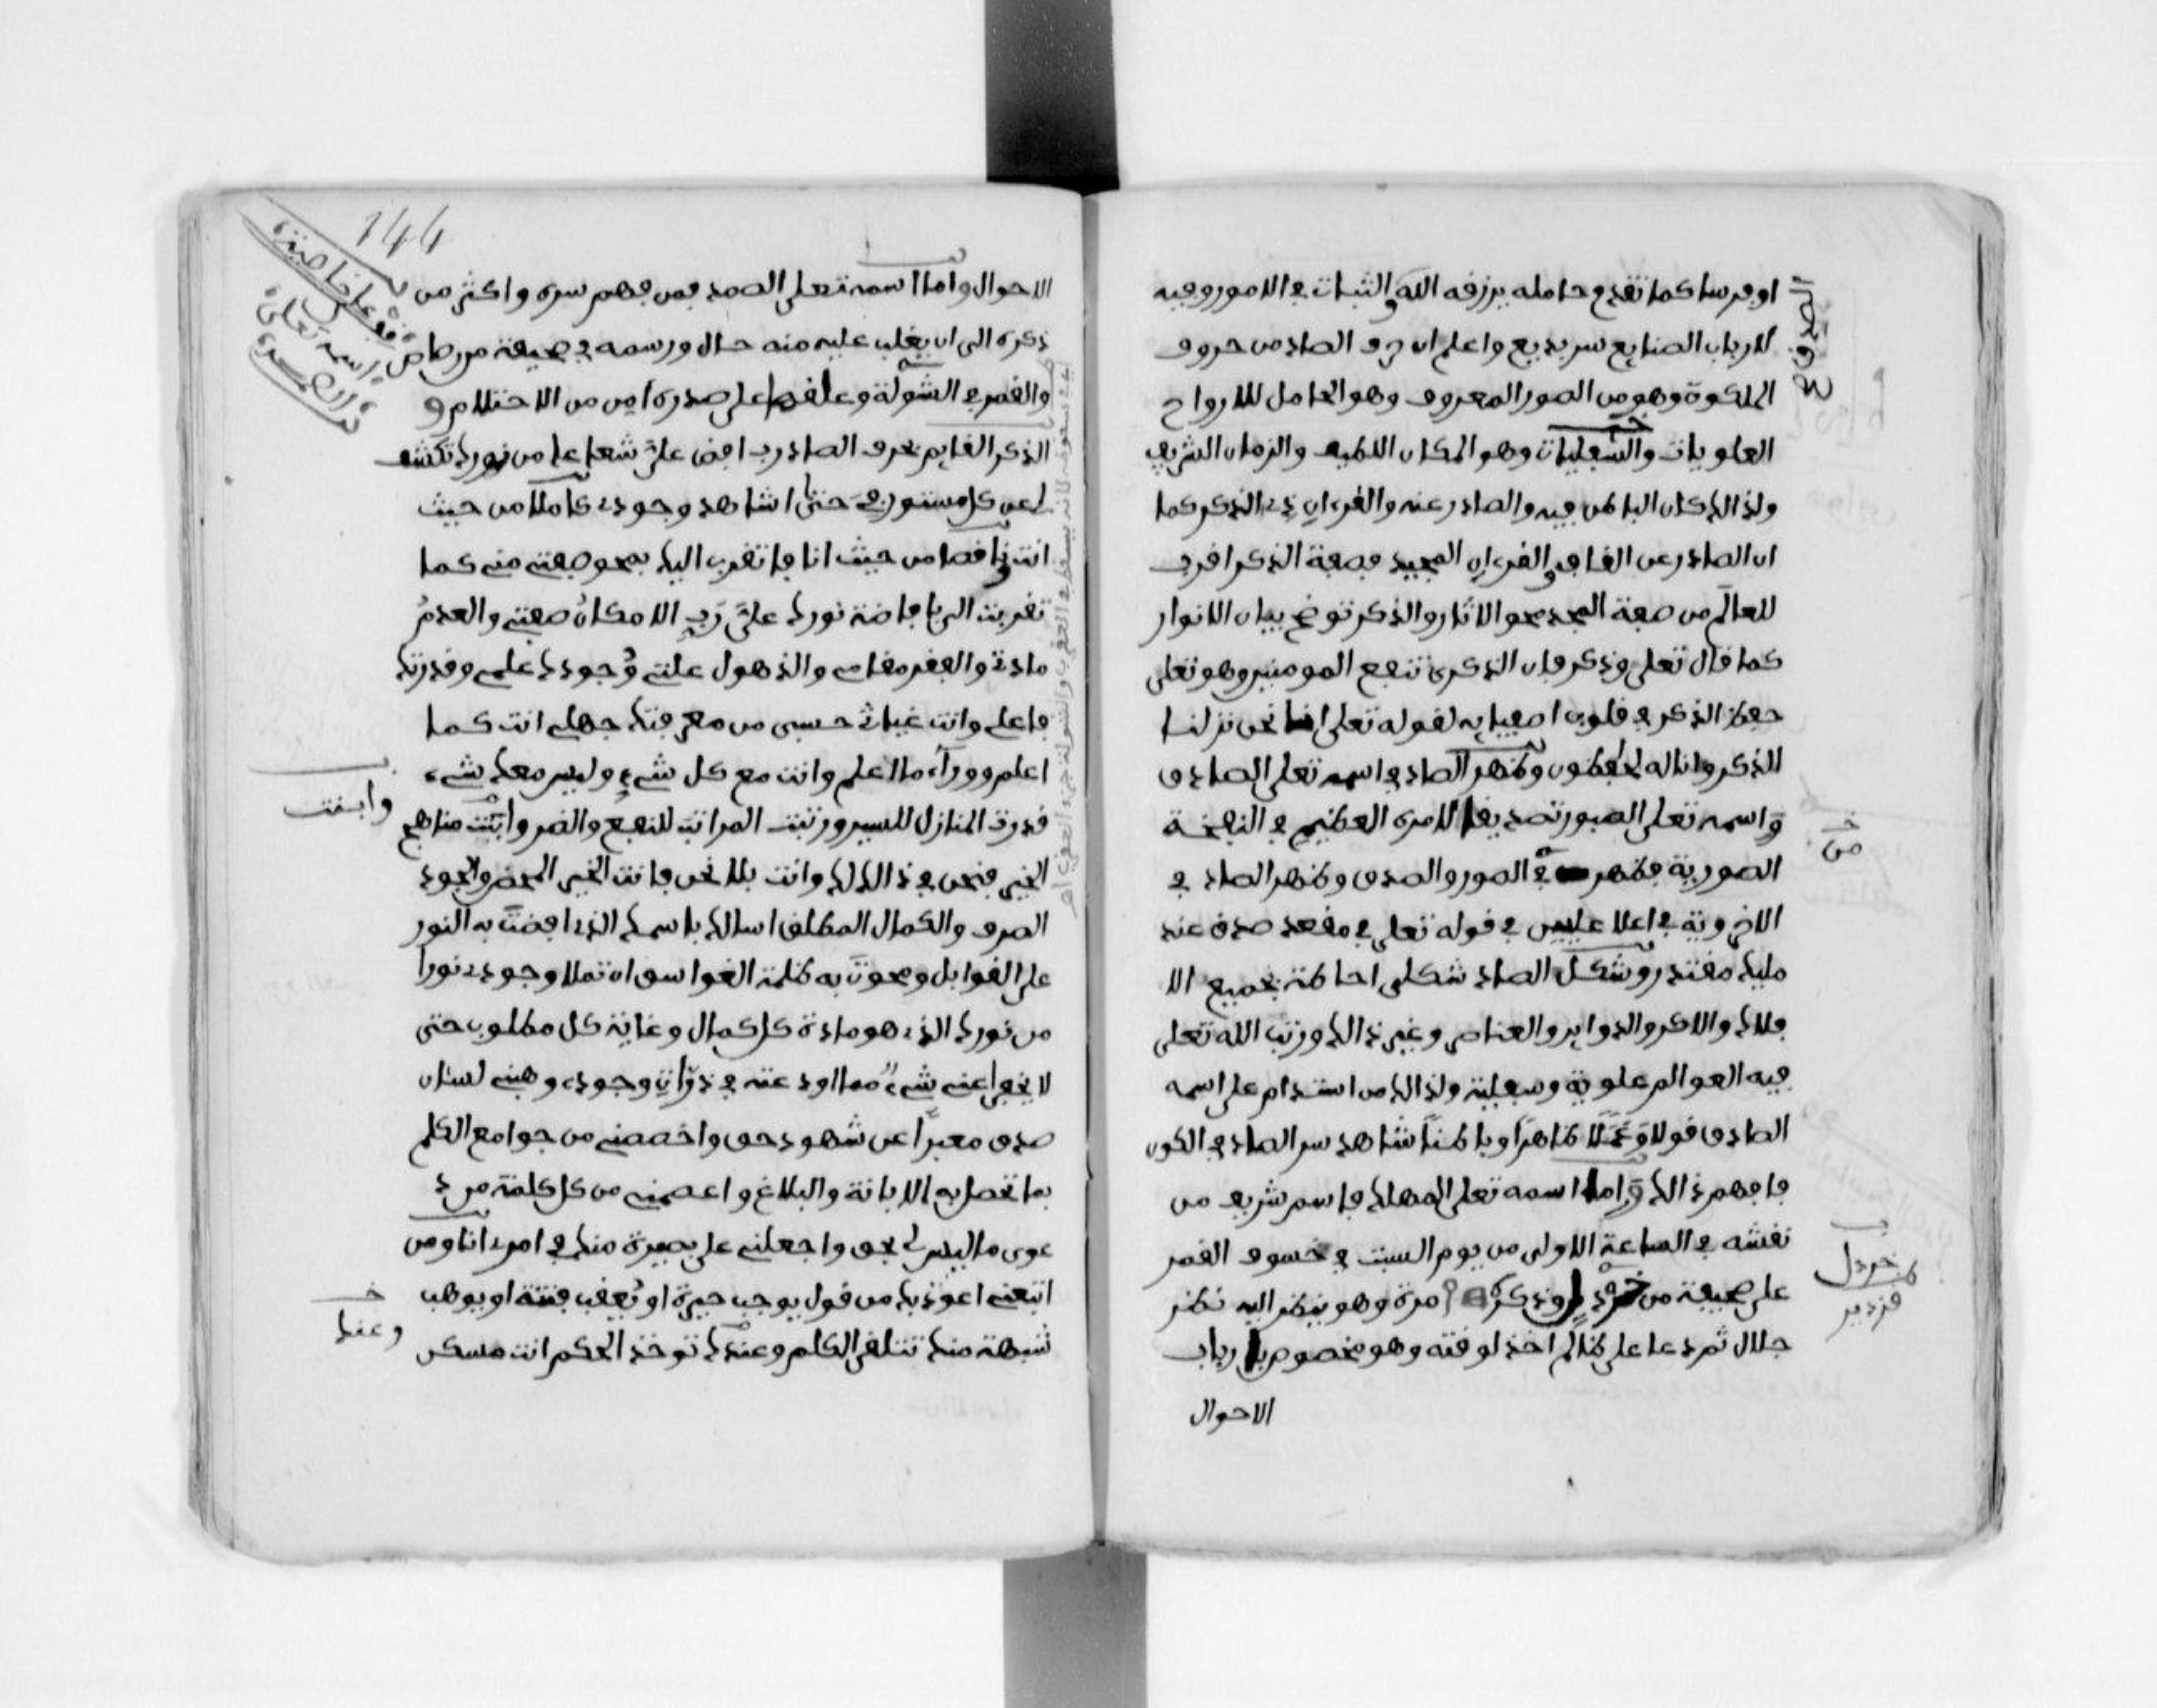 او مرسا كما تقدم حامله يرزقه الله الثبات في الامور وفيه
لارباب الصنايع سر بديع واعلم ان حرف الصاد من حروف
الملكوة وهو من الصور المعروف وهو الحامل للارواح
العلويات والسفليات وهو المكان اللطيف والزمان الشريف
ولذالك كان الباطن فيه والصادر عنه والقرءان ذي الذكر كما
ان الصادر عن القاف والقرءان المجيد فصفة الذكر اقرب
للعالم من صفة المجد محو الاثار والذكر توضح بيان الانوار
كما قال تعلى وذكر فان الذكرى تنفع المومنين وهو تعلى
حفظ الذكر في قلوب اصفيايه لقوله تعلى انا نحن نزلنا
الذكر وانا له لحفظون وظهر الصاد في اسمه تعلى الصادق
واسمه تعلى الصبور تصديقا للامرى العظيم في النفخة
الصورية فظهر في الصور والصدق وظهر الصاد في
الاخروية في اعلا عليين في قوله تعلى في مقعد صدق عند
مليك مقتدر وشكل الصاد شكلى احاطة بجميع الا
فلاك والاكر والدواير والعناصر وغير ذالك ورتب الله تعلى
فيه العوالم علوية وسفلية ولذالك من استدام على اسمه
الصادق قولا وعملا ظاهرا وباطنا شاهد سر الصاد في الكون
فافهم ذالك واما اسمه تعلى المهلك فاسم شريف من
نقشه في الساعة الاولى من يوم السبت في خسوف القمر
على صحيفة من وذكره مرة وهو ينظر اليه نظر
جلال ثم دعا على ظالم اخذ لوقته وهو مخصوص بارباب
الاحوال
من
خردل
قزدير
144
قف على خاصية
اسمه تعلى
الصمد
الاحوال واما اسمه تعلى الصمد فمن فهم سره واكثر من
ذكره الى ان يغلب عليه منه حال ورسمه في صحيفة من رصاص
والقمر في الشولة وعلقها على صدره امن من الاحتلام و
الذكر القايم بحرف الصاد رب افض علي شعاعا من نورك تكشف
لي عن كل مستور في حتى اشاهد وجودي كاملا من حيث
انت وناقصا من حيث انا فاتقرب اليك بمحو صفتي مني كما
تقربت الي بافاضة نورك علي رب الامكان صفتي والعدم
مادتي والفقر مقامي والذهول علتي وجودك علمي وقدرتك
فاعلي وانت غياثي حسبى من معرفتك جهلي انت كما
اعلم ووراء مالا اعلم وانت مع كل شيء وليس معك شيء
قدرت المنازل للسير ورتبت المراتب للنفع والضر وابنت مناهج
الخير فنحن في ذالك لك وانت بلا نحن فانت الخير المحض والجود
الصرف والكمال المطلق اسالك باسمك الذي افضت به النور
على القوابل ومحوت به ظلمة الغواسق ان تملا وجودي نورا
من نورك الذي هو مادة كل كمال وغاية كل مطلوب حتى
لا يخفى عني شيء مما اودعته في ذرات وجودي وهبني لسان
صدق معبرا عن شهود حق واخصصني من جوامع الكلم
بما تحصل به الابانة والبلاغ واعصمني من كل كلمة من د
عوى ما ليس لي بحق واجعلني على بصيرة منك في امري انا ومن
اتبعني اعوذ بك من قول يوجب حيرة او تعقب فتنة او يوهب
شبهة منك تتلقى الكلم وعندك توخذ الحكم انت مسك
وابنت
وعنك